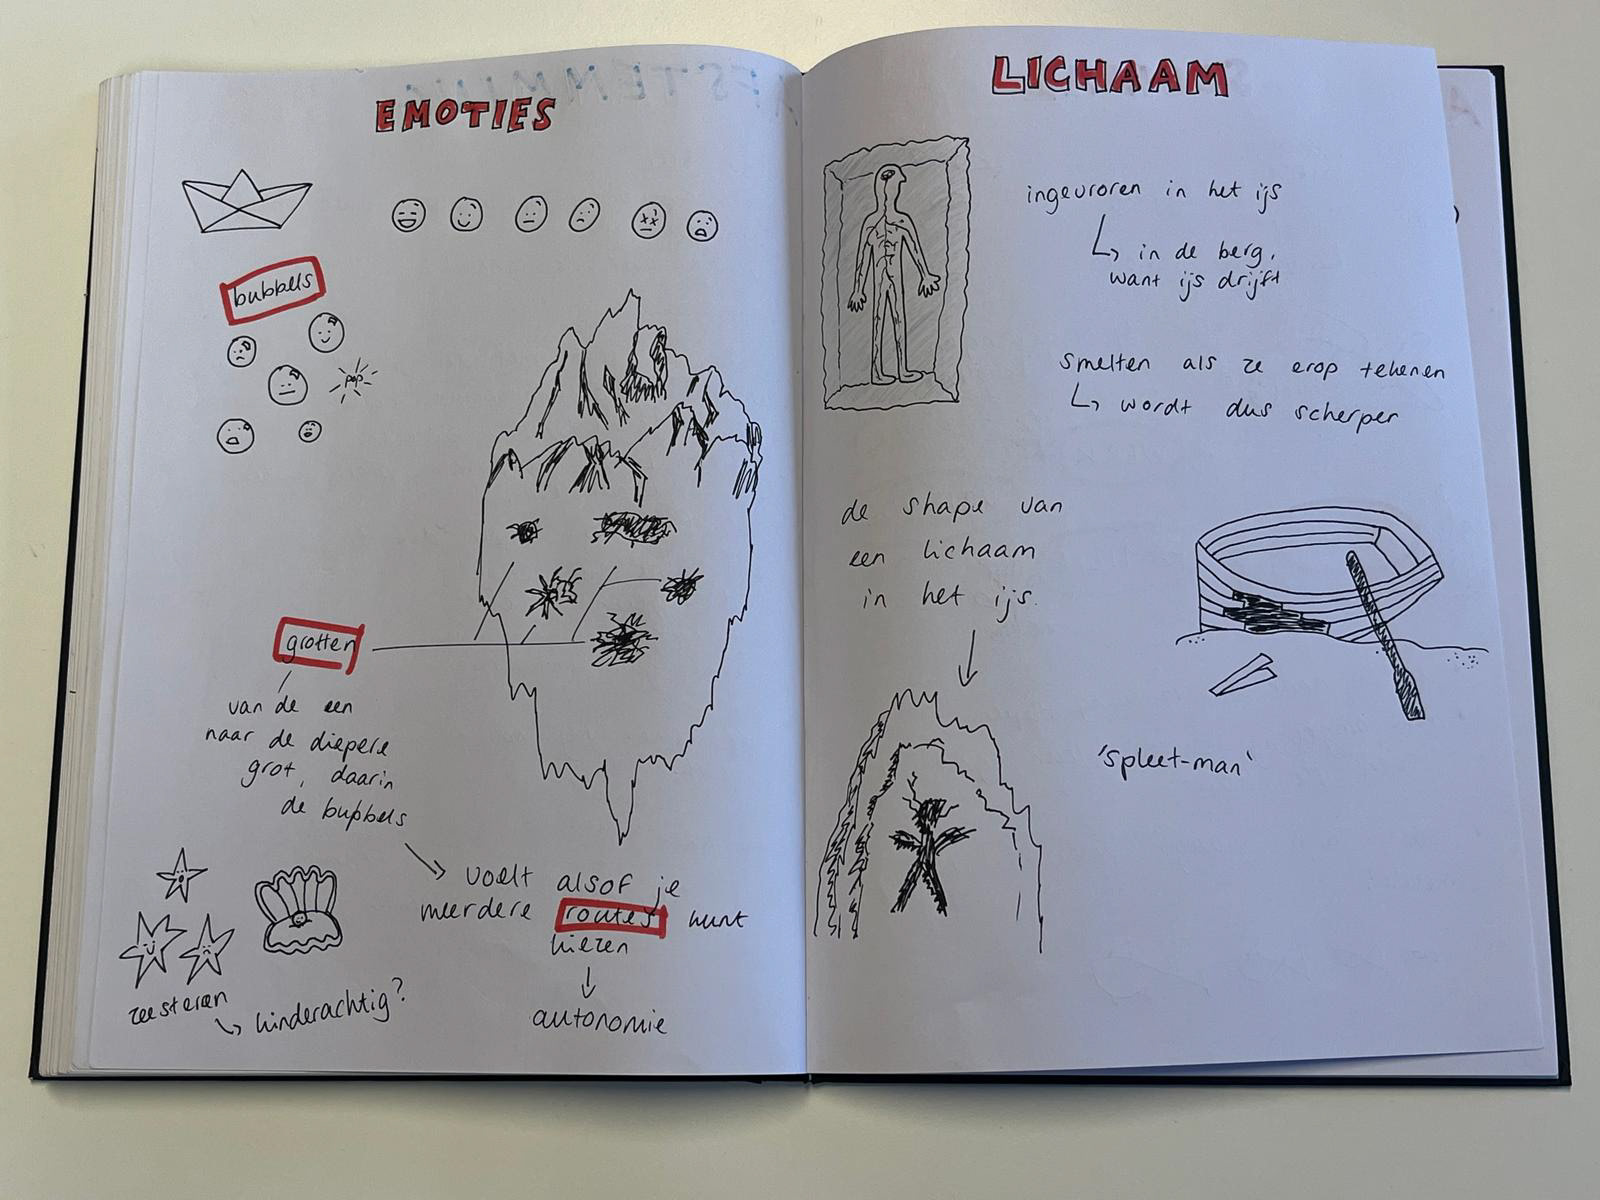 EMOTIES
bubbels
pop
grotten
van de een
naar de diepere
grot, daarin
de bubbels
voelt alsof je
meerdere routes kunt
kiezen
autonomie
zeesteren
kinderachtig?
LICHAAM
ingevroren in het ijs
in de berg,
want ijs drijft
smelten als ze erop tekenen
wordt dus scherper
de shape van
een lichaam
in het ijs.
'spleet-man'